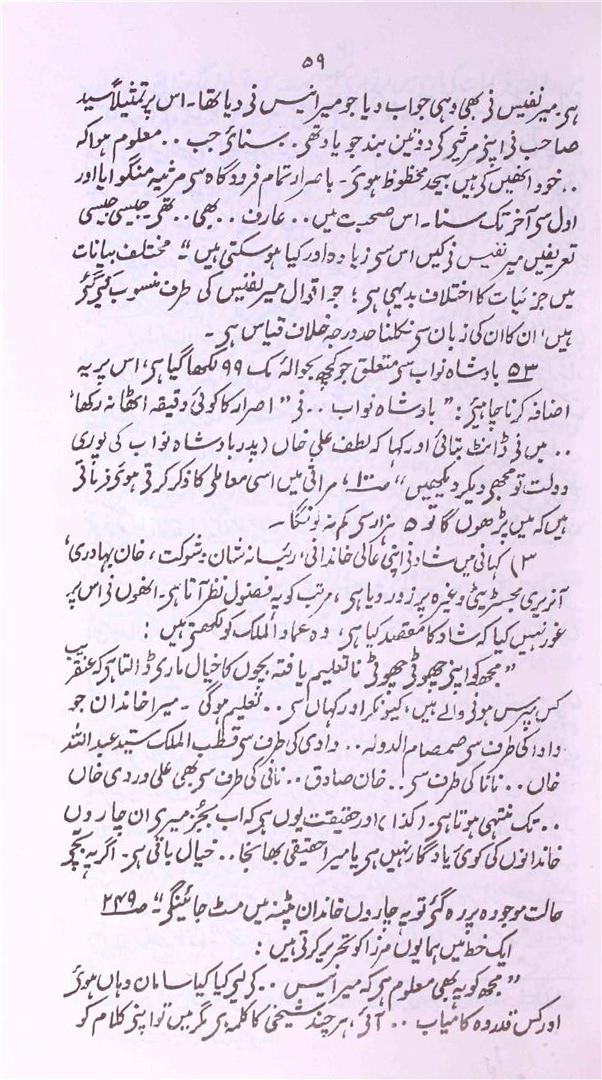 ۵۹
ہی میر نفیس نی بھی وہی جواب دیا جو میر انیس نی دیا تھا۔ اس پر تمثیلاً سید
صاحب نی اپنی مرثیی کی دو تین بند جو یاد تھی۔ سنائی جب .. معلوم ہوا کہ
.. خود انھیں کی ہیں بیحد محظوظ ہوئی۔ باصرار تمام فرودگاہ سی مرثیہ منگوایا اور
اول سی آخر تک سنا۔ اس صحبت میں .. عارف .. بھی .. تھی جیسی جیسی
تعریفیں میر نفیس نی کیں اس سی زیادہ اور کیا ہو سکتی ہیں"۔ مختلف بیانات
میں جزئیات کا اختلاف بدیہی ہی؛ جو اقوال میر نفیس کی طرف منسوب کیی گئی
ہیں، ان کا ان کی زبان سی نکلنا حد درجہ خلاف قیاس ہی۔
۵۳ بادشاہ نواب سی متعلق جو کچھ بحوالۂ مک ۹۹ لکھا گیا ہی، اس پر یہ
اضافہ کرنا چاہیئی: "بادشاہ نواب .. نی" اصرار کا کوئی دقیقہ اٹھا نہ رکھا،
.. میں نی ڈانٹ بتائی اور کہا کہ لطف علی خاں (پدر بادشاہ نواب کی پوری
دولت تو مجھی دیکر دیکھیں" صـ ۱۰۰، مراثی میں اسی معاملی کا ذکر کرتی ہوئی فرماتی
ہیں کہ میں پڑھوں گا تو ۵ ہزار سی کم نہ لونگا۔
۳) کہانی میں شاد نی اپنی عالی خاندانی، رئیسانہ شان و شوکت، خان بہادری،
آنریری مجسٹریٹی وغیرہ پر زور دیا ہی، مرتب کو یہ فضول نظر آتا ہی۔ انھوں نی اس پر
غور نہیں کیا کہ شاد کا مقصد کیا ہی، وہ عماد الملک کو لکھتی ہیں:
"مجھ کو اپنی چھوٹی چھوٹی نا تعلیم یافتہ بچوں کا خیال ماری ڈالتا ہی کہ عنقریب
کس مپرس ہونی والی ہیں، کیونکر اور کہاں سی .. تعلیم ہوگی۔ میرا خاندان جو
دادا کی طرف سی صمصام الدولہ .. دادی کی طرف سی قطب الملک سید عبد اللہ
خاں .. نانا کی طرف سی .. خان صادق .. نانی کی طرف سی بھی علی وردی خاں
.. تک منتہی ہوتا ہی۔ (کذا) اور حقیقت یوں ہی کہ اب بجز میری ان چاروں
خاندانوں کی کوئی یادگار نہیں ہی یا میرا حقیقی بھانجا .. خیال باقی ہی۔ اگر یہ بچی
حالت موجودہ پر رہ گئی تو یہ چاروں خاندان پٹنہ میں مٹ جائینگی۔" صـ ۲۴۹
ایک خط میں ہمایوں مرزا کو تحریر کرتی ہیں:
"مجھ کو یہ بھی معلوم ہی کہ میر انیس .. کی لیی کیا کیا سامان وہاں ہوئی
اور کس قدر وہ کامیاب .. آئی، ہر چند شیخی کا کلمہ ہی مگر میں تو اپنی کلام کو